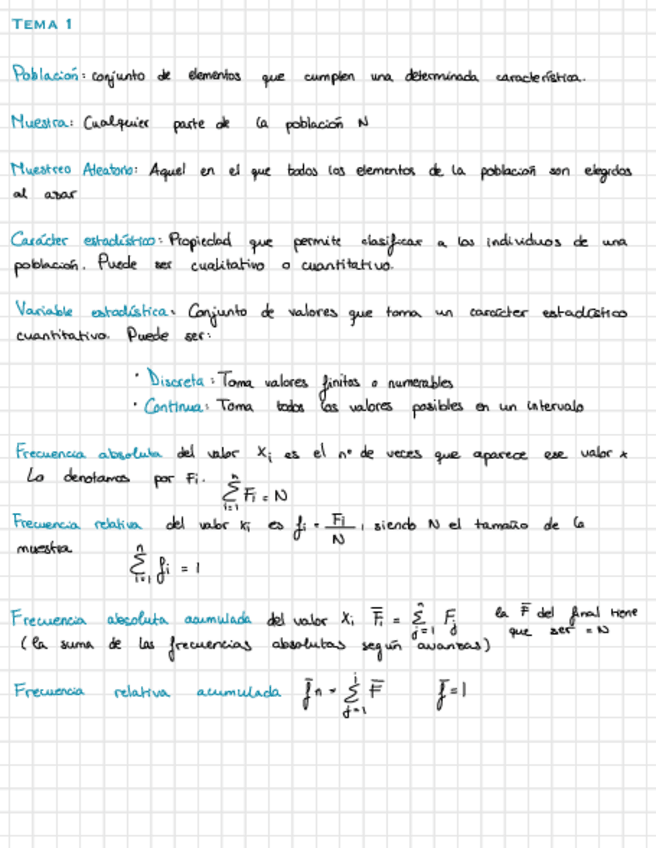 TEMA 1
Población: conjunto de elementos que cumplen una determinada característica.
Muestra: Cualquier parte de la población N
Muestreo Aleatorio: Aquel en el que todos los elementos de la población son elegidos
al azar
Carácter estadístico: Propiedad que permite clasificar a los individuos de una
población. Puede ser cualitativo o cuantitativo.
Variable estadística: Conjunto de valores que toma un carácter estadístico
cuantitativo. Puede ser:
· Discreta: Toma valores finitos o numerables
· Continua: Toma todos los valores posibles en un intervalo
Frecuencia absoluta del valor xi es el nº de veces que aparece ese valor x
Lo denotamos por Fi. ∑_{i=1}^{n} Fi = N
Frecuencia relativa del valor xi es fi = Fi/N, siendo N el tamaño de la
muestra ∑_{i=1}^{n} fi = 1
Frecuencia absoluta acumulada del valor Xi F̅i = ∑_{j=1}^{n} Fj la F̅ del final tiene
que ser = N
(la suma de las frecuencias absolutas según avanzas)
Frecuencia relativa acumulada f̅n = ∑_{j=1}^{i} F̅ f̅=1